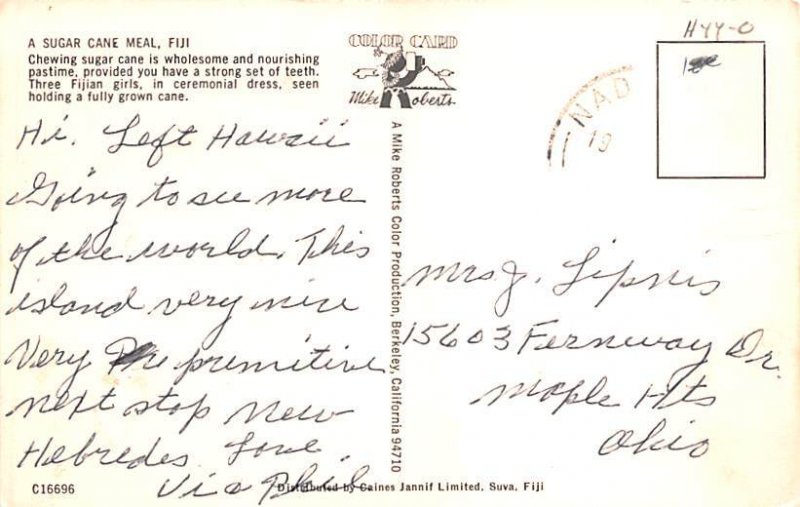 A SUGAR CANE MEAL, FIJI
Chewing sugar cane is wholesome and nourishing
pastime, provided you have a strong set of teeth.
Three Fijian girls, in ceremonial dress, seen
holding a fully grown cane.
Hi. Left Hawaii
Going to see more
of the world. This
island very nice
Very premitive
next stop New
Hebredes Love.
Via Phil
C16696
COLOR CARD
Mike Roberts
A Mike Roberts Color Production, Berkeley, California 94710
Distributed by Caines Jannif Limited, Suva, Fiji
H44-0
NAD
19
Mrs J. Lipnis
15603 Fernway Dr.
Maple Hts
Ohio